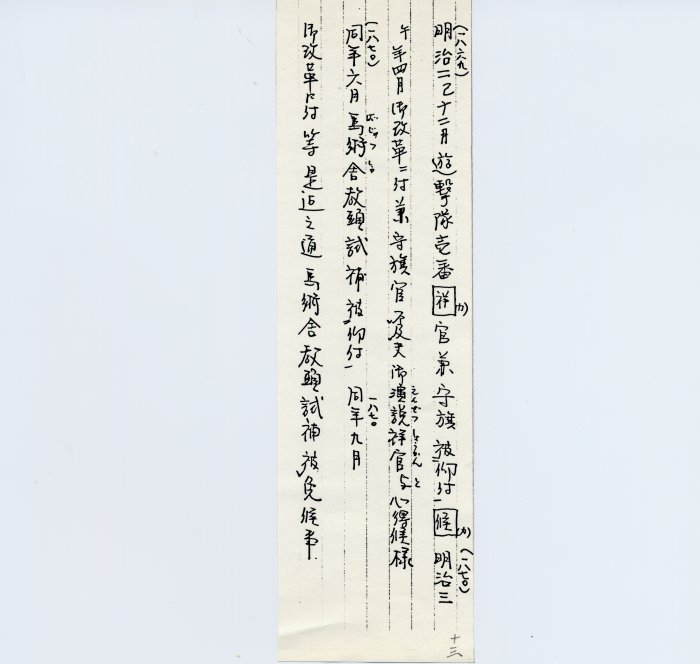 (一八六九)
明治二己十二月遊撃隊壱番祥(カ)官兼守旗被仰付候(カ)明治三
(一八七〇)
午年四月御改革ニ付兼守旗官不及其御演説祥官与心得候様
えんぜつ しょうかん と
(一八七〇)
同年六月馬術舎教頭試補被仰付 同年九月
ばじゅつしゃ
一八七〇
御改革ニ付等是迄之通馬術舎教頭試補被免候事
十三